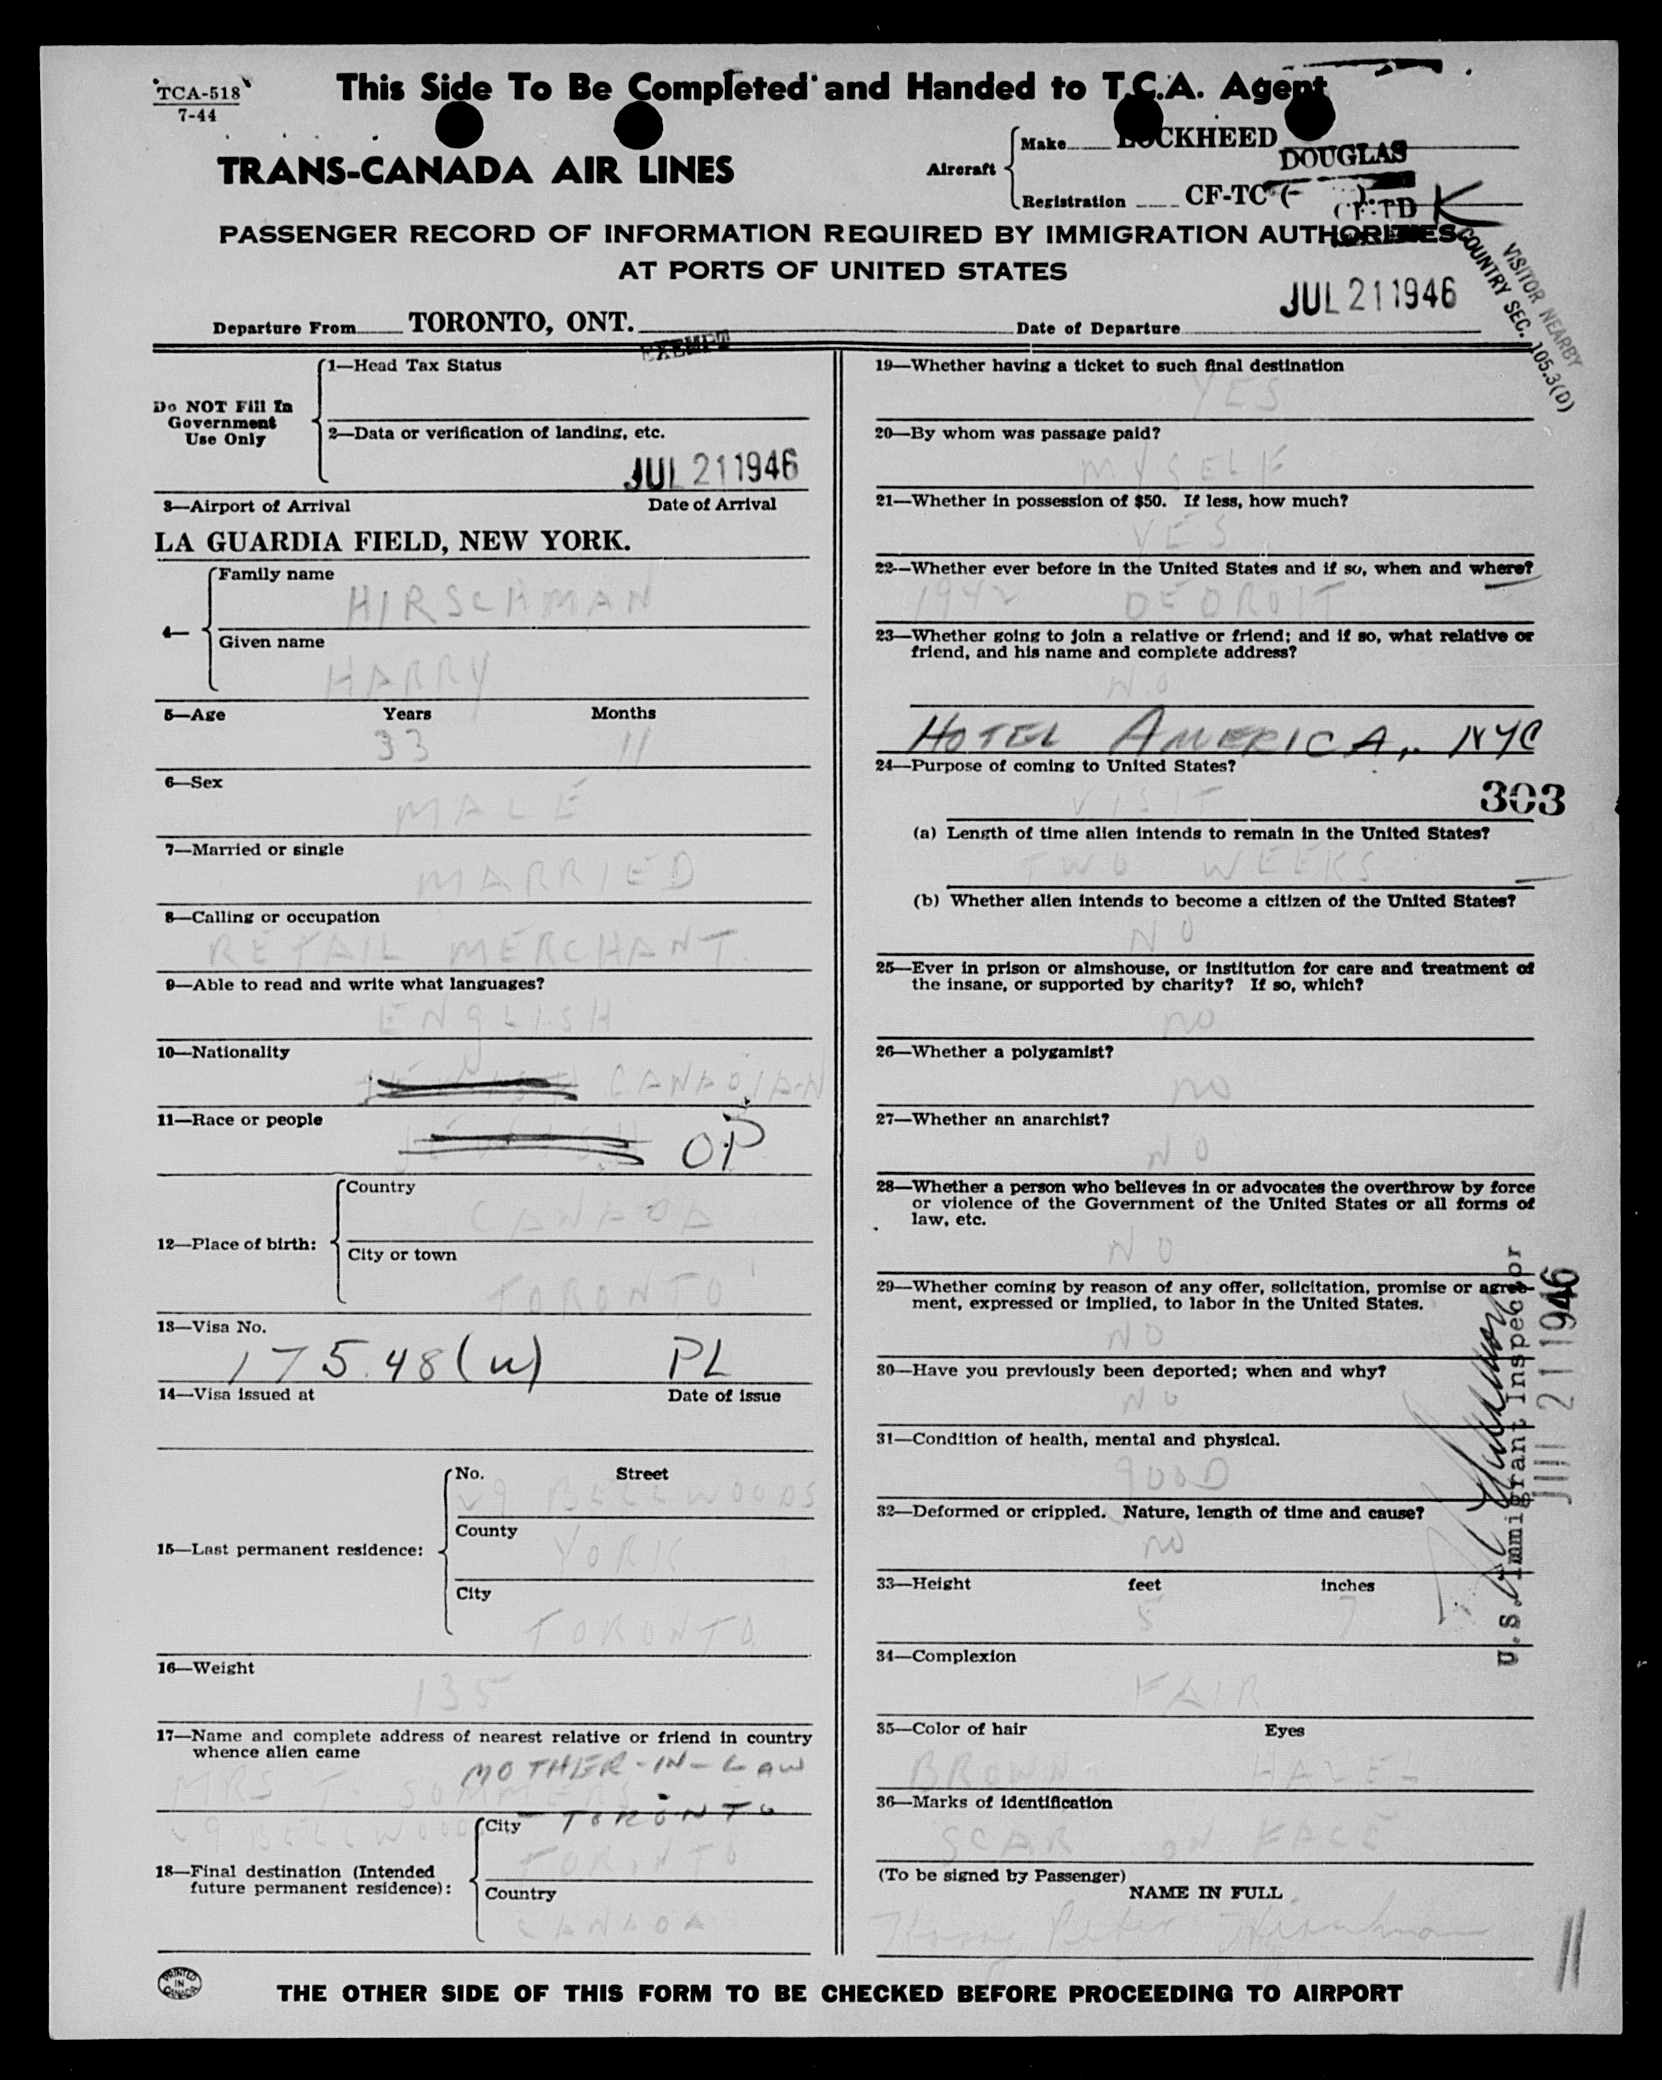 TCA-518
7-44
This Side To Be Completed and Handed to T.C.A. Agent
TRANS-CANADA AIR LINES
Aircraft
Make LOCKHEED
DOUGLAS
Registration CF-TC (- ).
CF-TD K
PASSENGER RECORD OF INFORMATION REQUIRED BY IMMIGRATION AUTHORITIES
AT PORTS OF UNITED STATES
VISITOR NEARBY
COUNTRY SEC. 105.3(D)
Departure From TORONTO, ONT.
Date of Departure JUL 21 1946
Do NOT Fill In
Government
Use Only
1—Head Tax Status
EXEMPT
2—Data or verification of landing, etc.
JUL 21 1946
3—Airport of Arrival Date of Arrival
LA GUARDIA FIELD, NEW YORK.
4—
Family name
HIRSCHMAN
Given name
HARRY
5—Age Years Months
33 11
6—Sex
MALE
7—Married or single
MARRIED
8—Calling or occupation
RETAIL MERCHANT.
9—Able to read and write what languages?
ENGLISH
10—Nationality
CANADIAN
11—Race or people
JEWISH OP
12—Place of birth:
Country
CANADA
City or town
TORONTO
13—Visa No.
175.48(u) PL
14—Visa issued at Date of issue
15—Last permanent residence:
No. Street
29 BELLWOODS
County
YORK
City
TORONTO
16—Weight
135
17—Name and complete address of nearest relative or friend in country
whence alien came
MOTHER-IN-LAW
MRS T. SOMMERS
29 BELLWOODS
TORONTO
18—Final destination (Intended
future permanent residence):
City
TORONTO
Country
CANADA
19—Whether having a ticket to such final destination
YES
20—By whom was passage paid?
MYSELF
21—Whether in possession of $50. If less, how much?
YES
22—Whether ever before in the United States and if so, when and where?
1942 DEDROIT
23—Whether going to join a relative or friend; and if so, what relative or
friend, and his name and complete address?
NO
HOTEL AMERICA, NYC
24—Purpose of coming to United States?
VISIT
303
(a) Length of time alien intends to remain in the United States?
TWO WEEKS
(b) Whether alien intends to become a citizen of the United States?
NO
25—Ever in prison or almshouse, or institution for care and treatment of
the insane, or supported by charity? If so, which?
NO
26—Whether a polygamist?
NO
27—Whether an anarchist?
NO
28—Whether a person who believes in or advocates the overthrow by force
or violence of the Government of the United States or all forms of
law, etc.
NO
29—Whether coming by reason of any offer, solicitation, promise or agree-
ment, expressed or implied, to labor in the United States.
NO
30—Have you previously been deported; when and why?
NO
31—Condition of health, mental and physical.
GOOD
32—Deformed or crippled. Nature, length of time and cause?
NO
33—Height feet inches
5 7
34—Complexion
FAIR
35—Color of hair Eyes
BROWN HAZEL
36—Marks of identification
SCAR ON FACE
(To be signed by Passenger)
NAME IN FULL
Harry Peter Hirschman
U.S. Immigrant Inspector
JUL 21 1946
PRINTED
IN
CANADA
THE OTHER SIDE OF THIS FORM TO BE CHECKED BEFORE PROCEEDING TO AIRPORT